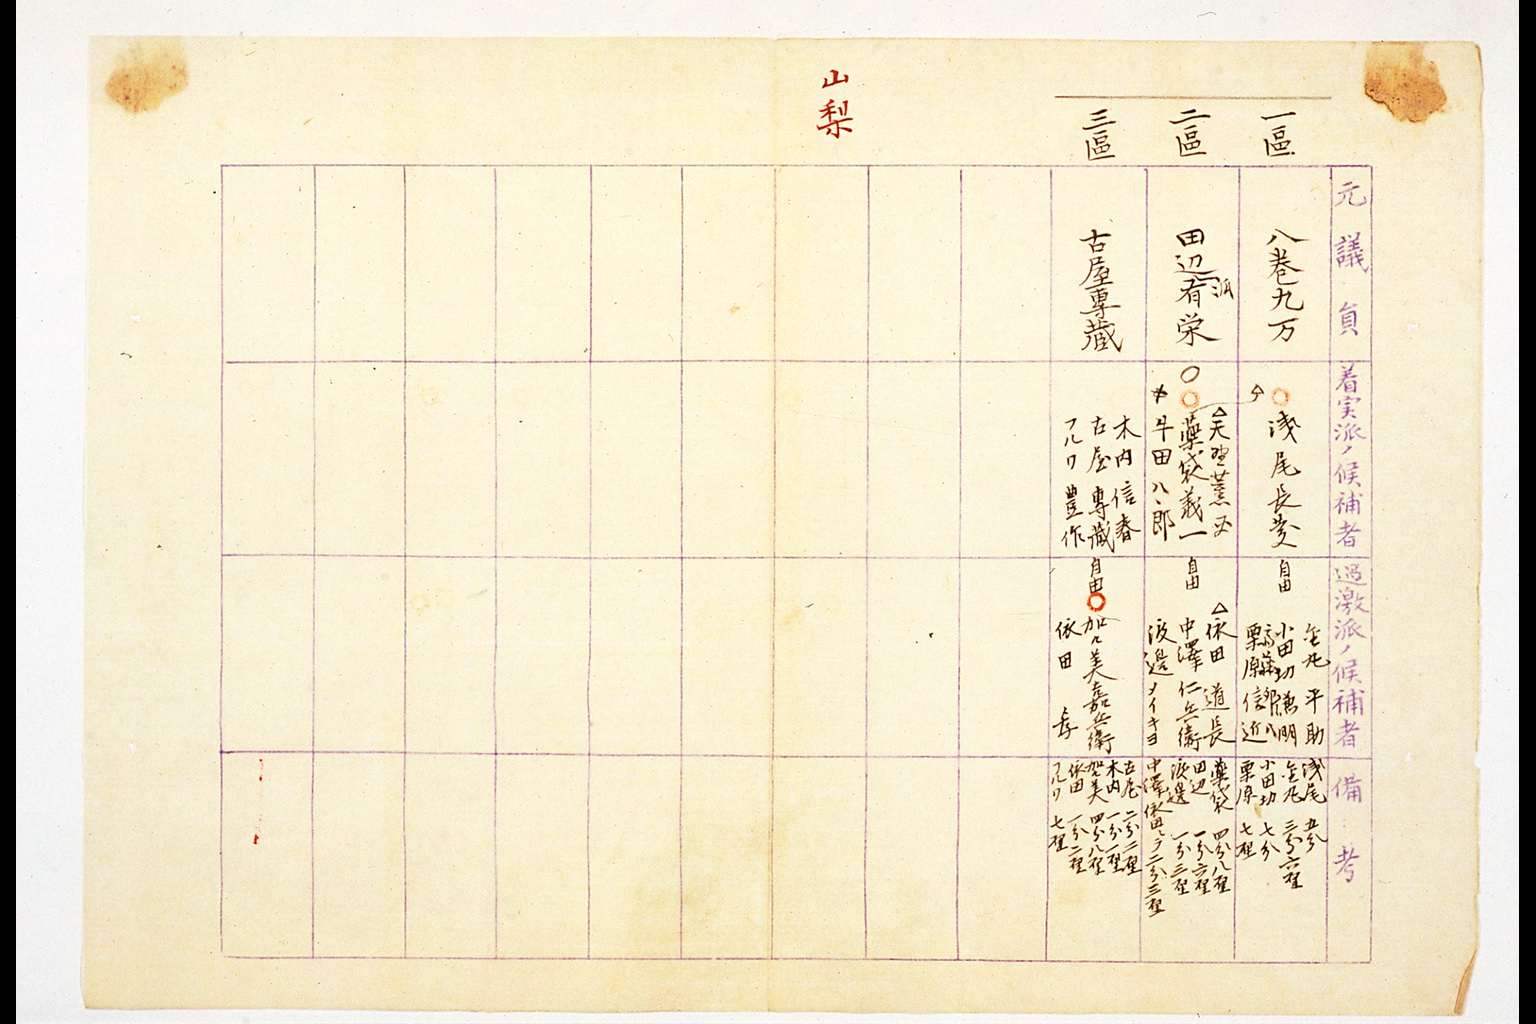 山梨
元議員
着実派ノ候補者
過激派ノ候補者
備考
一區
八巻九万
浅尾長慶
自由
金丸平助
小田切謙明
栗原信近
浅尾 五分
金丸 三分六厘
小田切 七分
栗原 七厘
二區
田辺有栄
派
△天野薫
薬袋義一
田八郎
自由
△依田道長
中澤仁兵衛
渡邊メイキヨ
薬袋 四分八厘
田辺 一分六厘
渡邊 一分三厘
中澤依田ニテ二分三厘
三區
古屋専蔵
木内信春
古屋専蔵
フルワ豊作
自由
加々美嘉兵衛
依田孝
古屋 二分二厘
木内 一分一厘
加々美 四分八厘
依田 一分二厘
フルワ 七厘